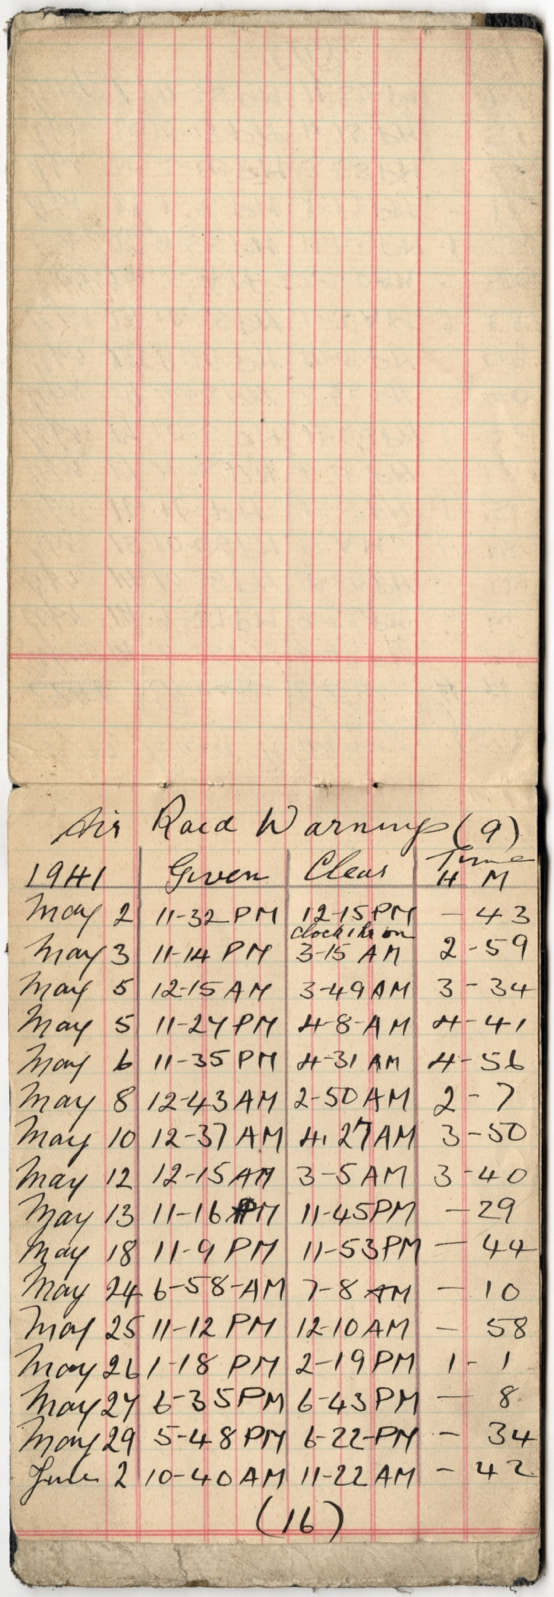 Air Raid Warnings (9)
Time
1941 Given Clear H M
May 2 11-32 PM 12-15 PM - 43
Clock 1hr on
May 3 11-14 PM 3-15 AM 2-59
May 5 12-15 AM 3-49 AM 3-34
May 5 11-27 PM 4-8-AM 4-41
May 6 11-35 PM 4-31 AM 4-56
May 8 12-43 AM 2-50 AM 2-7
May 10 12-37 AM 4.27 AM 3-50
May 12 12-15 AM 3-5 AM 3-40
May 13 11-16 PM 11-45 PM - 29
May 18 11-9 PM 11-53 PM - 44
May 24 6-58-AM 7-8 AM - 10
May 25 11-12 PM 12-10 AM - 58
May 26 1-18 PM 2-19 PM 1-1
May 27 6-35 PM 6-43 PM - 8
May 29 5-48 PM 6-22-PM - 34
June 2 10-40 AM 11-22 AM - 42
(16)